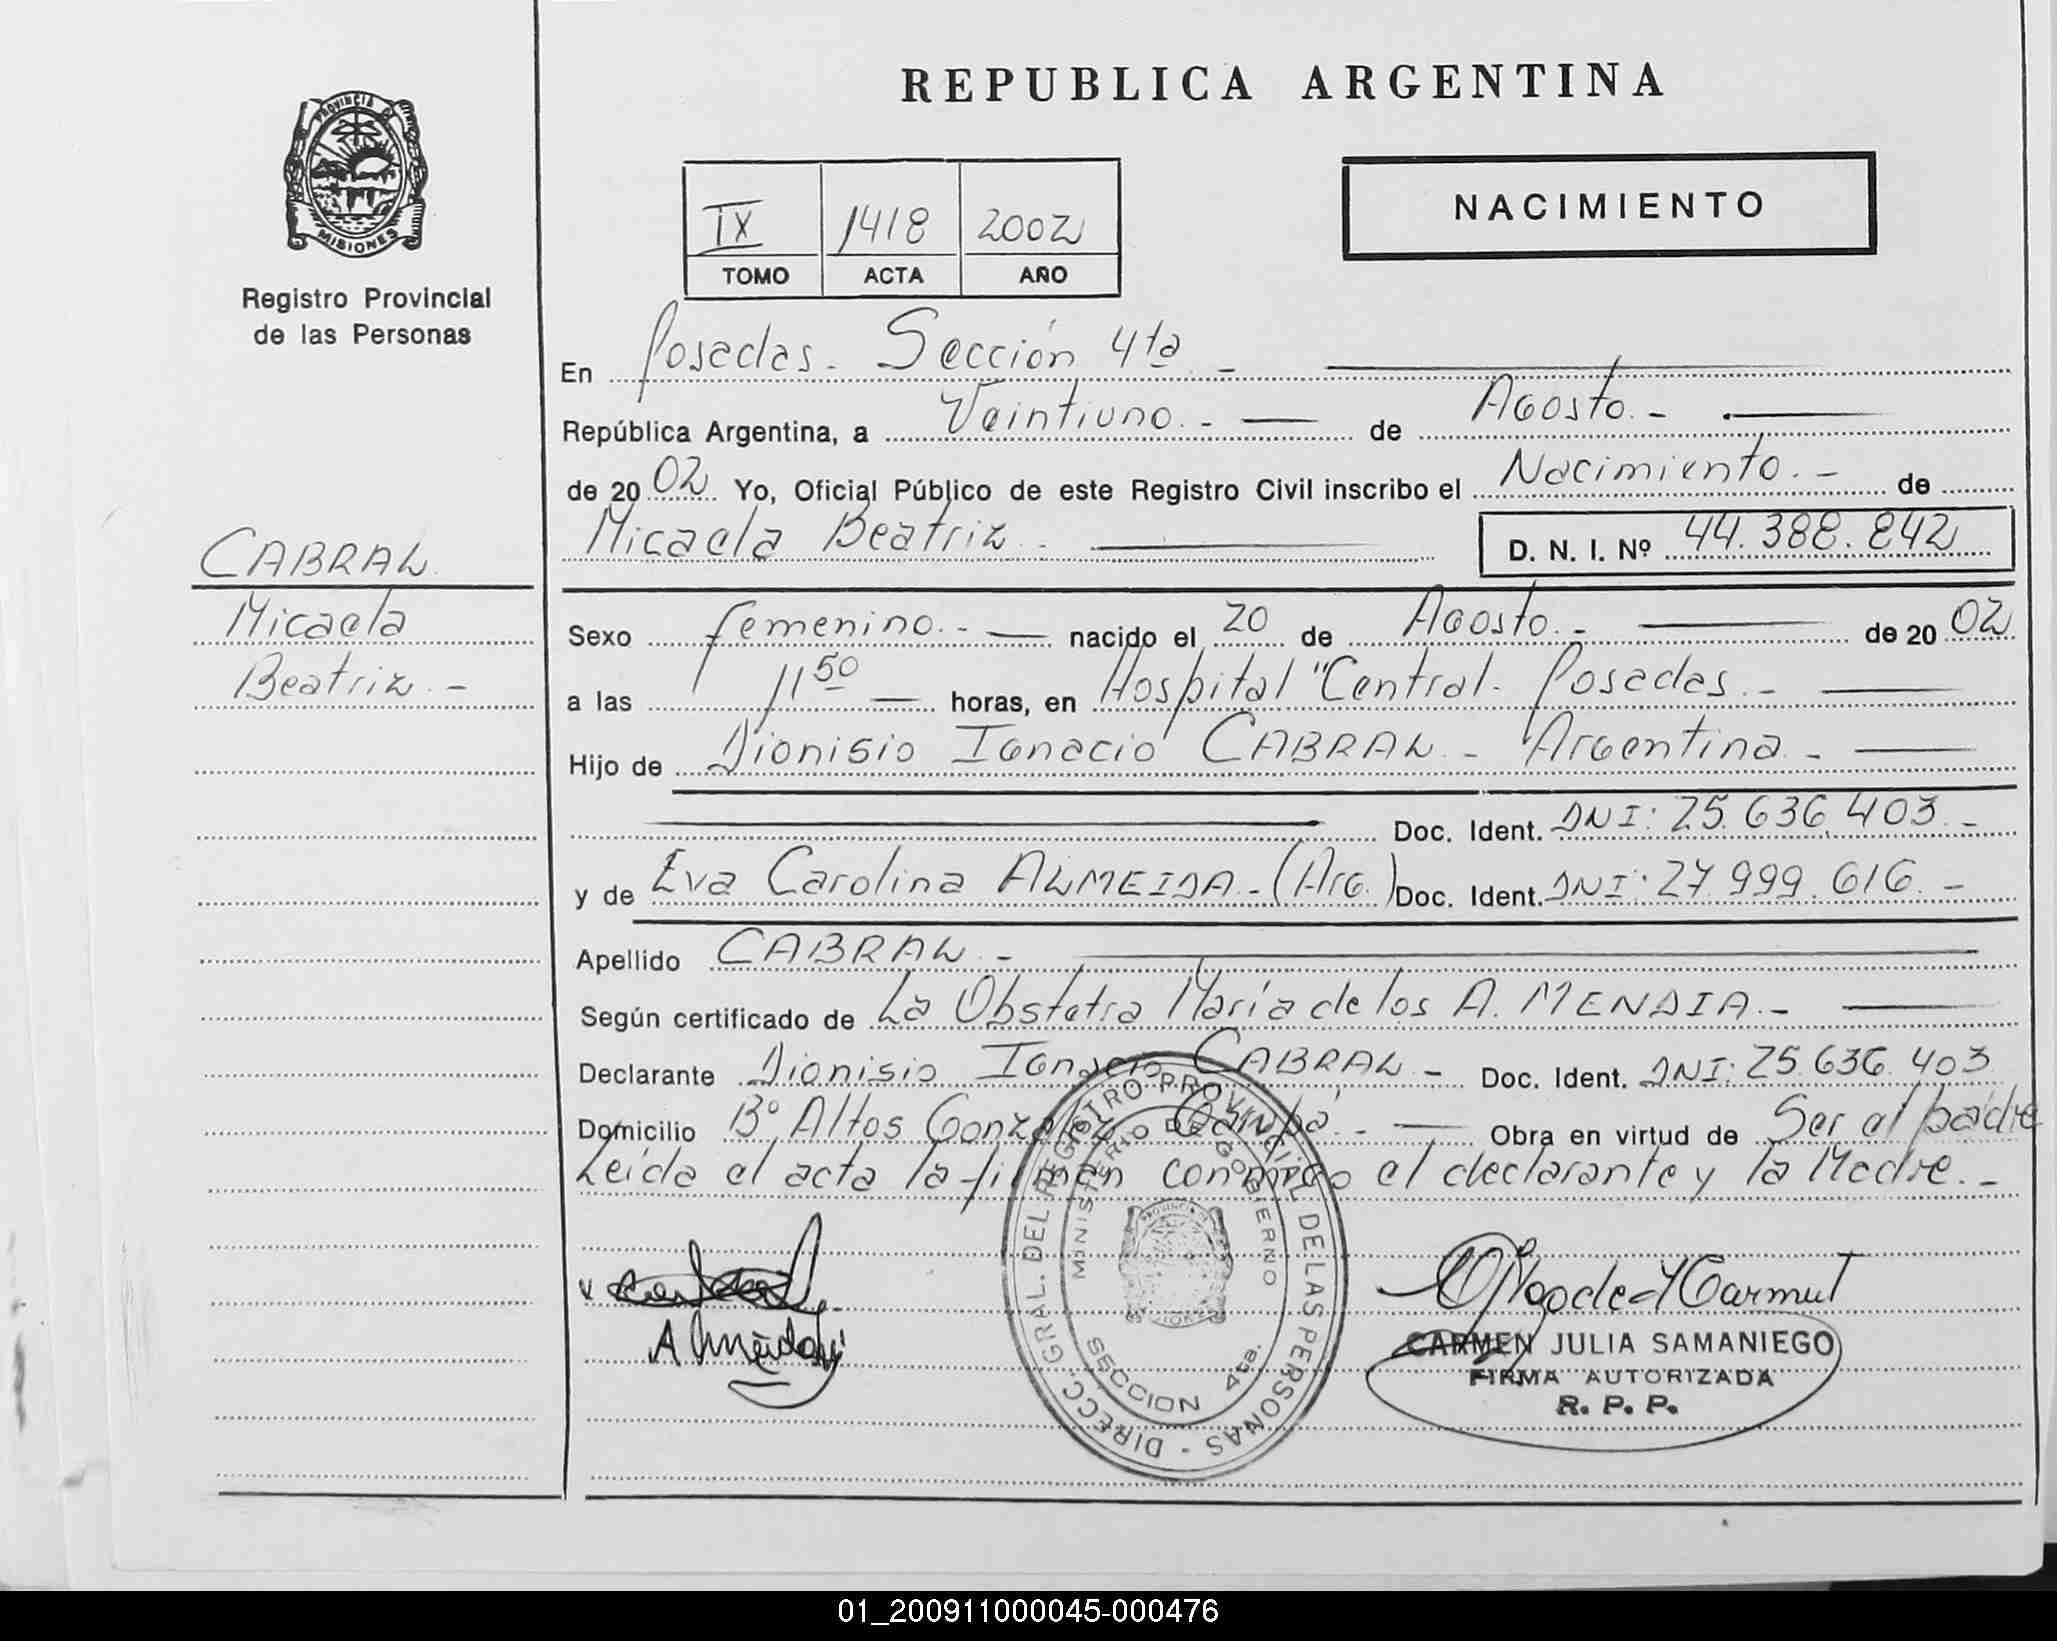 REPUBLICA ARGENTINA
PROVINCIA DE
MISIONES
Registro Provincial
de las Personas
NACIMIENTO
IX 1418 2002
TOMO ACTA AÑO
En Posadas. Sección 4ta. -
República Argentina, a Veintiuno. - de Agosto. -
de 2002 Yo, Oficial Público de este Registro Civil inscribo el Nacimiento. - de
Micaela Beatriz. D. N. I. Nº 44.388.842
CABRAL
Micaela
Beatriz. -
Sexo femenino. - nacido el 20 de Agosto. - de 2002
a las 11 50 horas, en Hospital "Central. Posadas. -
Hijo de Dionisio Ignacio CABRAL - Argentina. -
Doc. Ident. DNI: 25.636.403. -
y de Eva Carolina ALMEIDA. - (Arg.) Doc. Ident. DNI: 27.999.616. -
Apellido CABRAL. -
Según certificado de La Obstetra María de los A. MENDIA. -
Declarante Dionisio Ignacio CABRAL - Doc. Ident. DNI: 25.636.403
Domicilio Bº Altos Gonzalez - Obra en virtud de Ser el padre
Leída el acta la firman conmigo el declarante y la Madre. -
DIRECC. GRAL. DEL REGISTRO PROVINCIAL DE LAS PERSONAS -
MINISTERIO DE GOBIERNO
SECCION 4ta.
CARMEN JULIA SAMANIEGO
FIRMA AUTORIZADA
R. P. P.
01_200911000045-000476